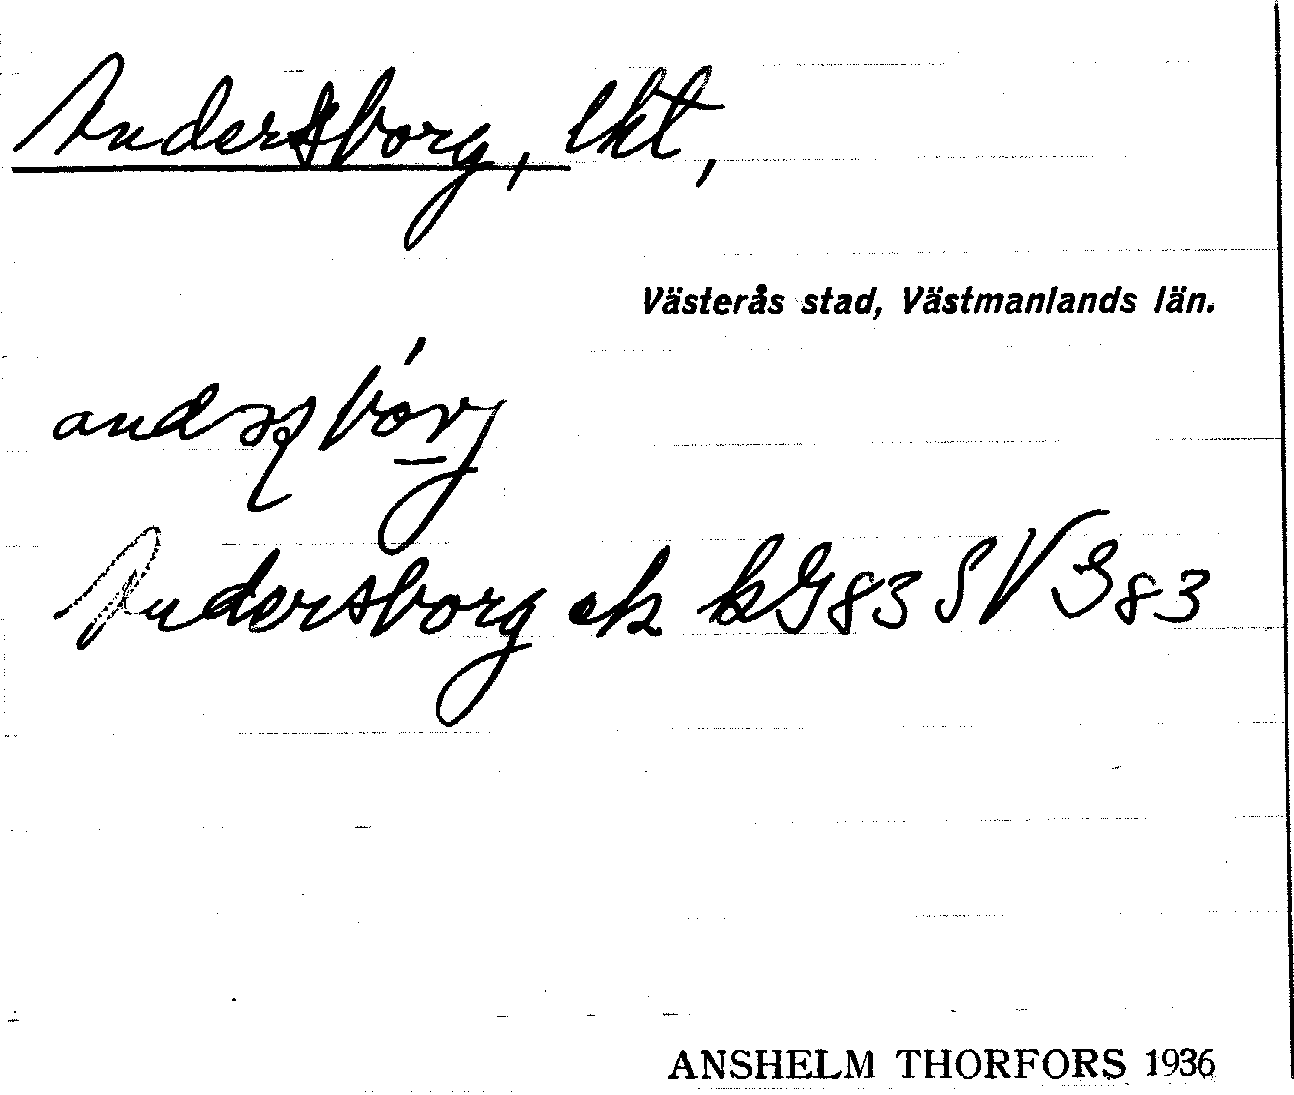 Andersborg, lht,
Västerås stad, Västmanlands län.
Andersborg ek kG83 SV G83
ANSHELM THORFORS 1936